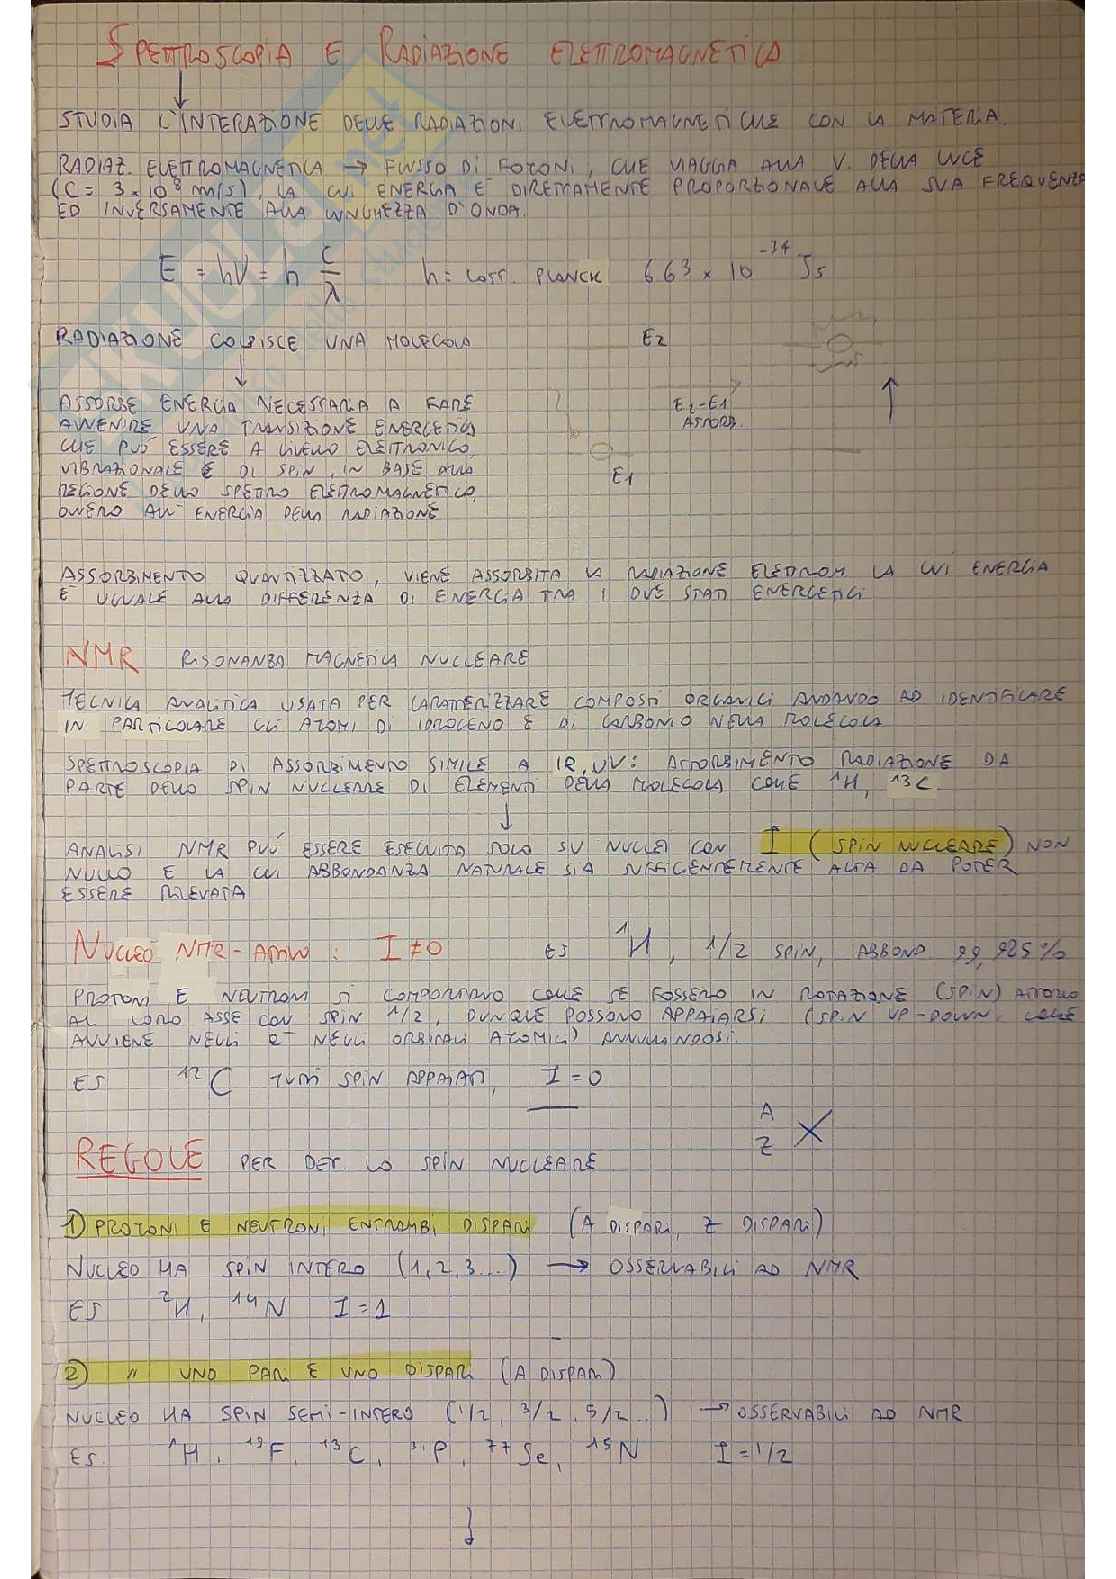 SPETTROSCOPIA E RADIAZIONE ELETTROMAGNETICA
STUDIA L'INTERAZIONE DELLE RADIAZIONI ELETTROMAGNETICHE CON LA MATERIA.
RADIAZ. ELETTROMAGNETICA → FLUSSO DI FOTONI, CHE VIAGGIA ALLA V. DELLA LUCE
(C = 3 × 10⁸ m/s), LA CUI ENERGIA È DIRETTAMENTE PROPORZIONALE ALLA SUA FREQUENZA
ED INVERSAMENTE ALLA LUNGHEZZA D'ONDA.
E = hν = h c/λ h = COST. PLANCK 6.63 × 10⁻³⁴ Js
RADIAZIONE COLPISCE UNA MOLECOLA
E2
ASSORBE ENERGIA NECESSARIA A FARE
AVVENIRE UNA TRANSIZIONE ENERGETICA
CHE PUÒ ESSERE A LIVELLO ELETTRONICO,
VIBRAZIONALE E DI SPIN, IN BASE ALLA
REGIONE DELLO SPETTRO ELETTROMAGNETICO,
OVVERO ALL'ENERGIA DELLA RADIAZIONE
E2-E1
ASSORB.
E1
ASSORBIMENTO QUANTIZZATO, VIENE ASSORBITA LA RADIAZIONE ELETTROM. LA CUI ENERGIA
È UGUALE ALLA DIFFERENZA DI ENERGIA TRA I DUE STATI ENERGETICI
NMR RISONANZA MAGNETICA NUCLEARE
TECNICA ANALITICA USATA PER CARATTERIZZARE COMPOSTI ORGANICI ANDANDO AD IDENTIFICARE
IN PARTICOLARE GLI ATOMI DI IDROGENO E DI CARBONIO NELLA MOLECOLA
SPETTROSCOPIA DI ASSORBIMENTO SIMILE A IR, UV: ASSORBIMENTO RADIAZIONE DA
PARTE DELLO SPIN NUCLEARE DI ELEMENTI DELLA MOLECOLA COME ¹H, ¹³C.
ANALISI NMR PUÒ ESSERE ESEGUITA SOLO SU NUCLEI CON I (SPIN NUCLEARE) NON
NULLO E LA CUI ABBONDANZA NATURALE SIA SUFFICIENTEMENTE ALTA DA POTER
ESSERE RILEVATA
NUCLEO NMR-ATTIVO : I ≠ 0 ES ¹H, 1/2 SPIN, ABBOND. 99,985%
PROTONI E NEUTRONI SI COMPORTANO COME SE FOSSERO IN ROTAZIONE (SPIN) ATTORNO
AL LORO ASSE CON SPIN 1/2, DUNQUE POSSONO APPAIARSI (SPIN UP-DOWN, COME
AVVIENE NEGLI e⁻ NEGLI ORBITALI ATOMICI) ANNULLANDOSI.
ES ¹²C TUTTI SPIN APPAIATI, I = 0
A
Z X
REGOLE PER DET. LO SPIN NUCLEARE
1) PROTONI E NEUTRONI ENTRAMBI DISPARI (A DISPARI, Z DISPARI)
NUCLEO HA SPIN INTERO (1, 2, 3...) → OSSERVABILI AD NMR
ES ²H, ¹⁴N I = 1
2) " UNO PARI E UNO DISPARI (A DISPARI)
NUCLEO HA SPIN SEMI-INTERO (1/2, 3/2, 5/2...) → OSSERVABILI AD NMR
ES. ¹H, ¹⁹F, ¹³C, ³¹P, ⁷⁷Se, ¹⁵N I = 1/2